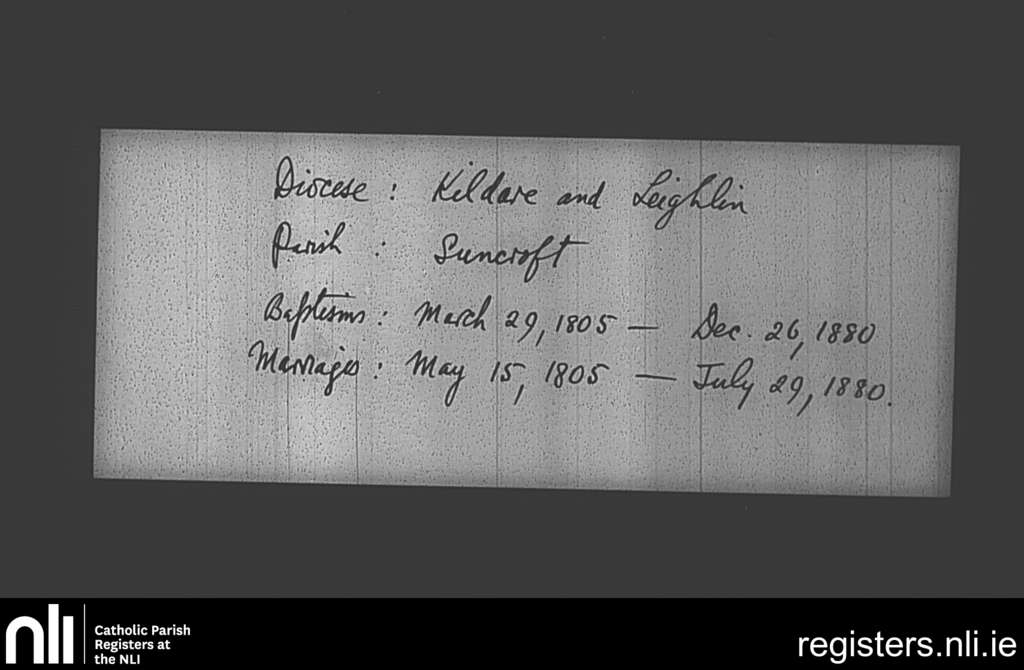 Diocese : Kildare and Leighlin
Parish : Suncroft
Baptisms : March 29, 1805 — Dec. 26, 1880
Marriages : May 15, 1805 — July 29, 1880.
nli
Catholic Parish
Registers at
the NLI
registers.nli.ie